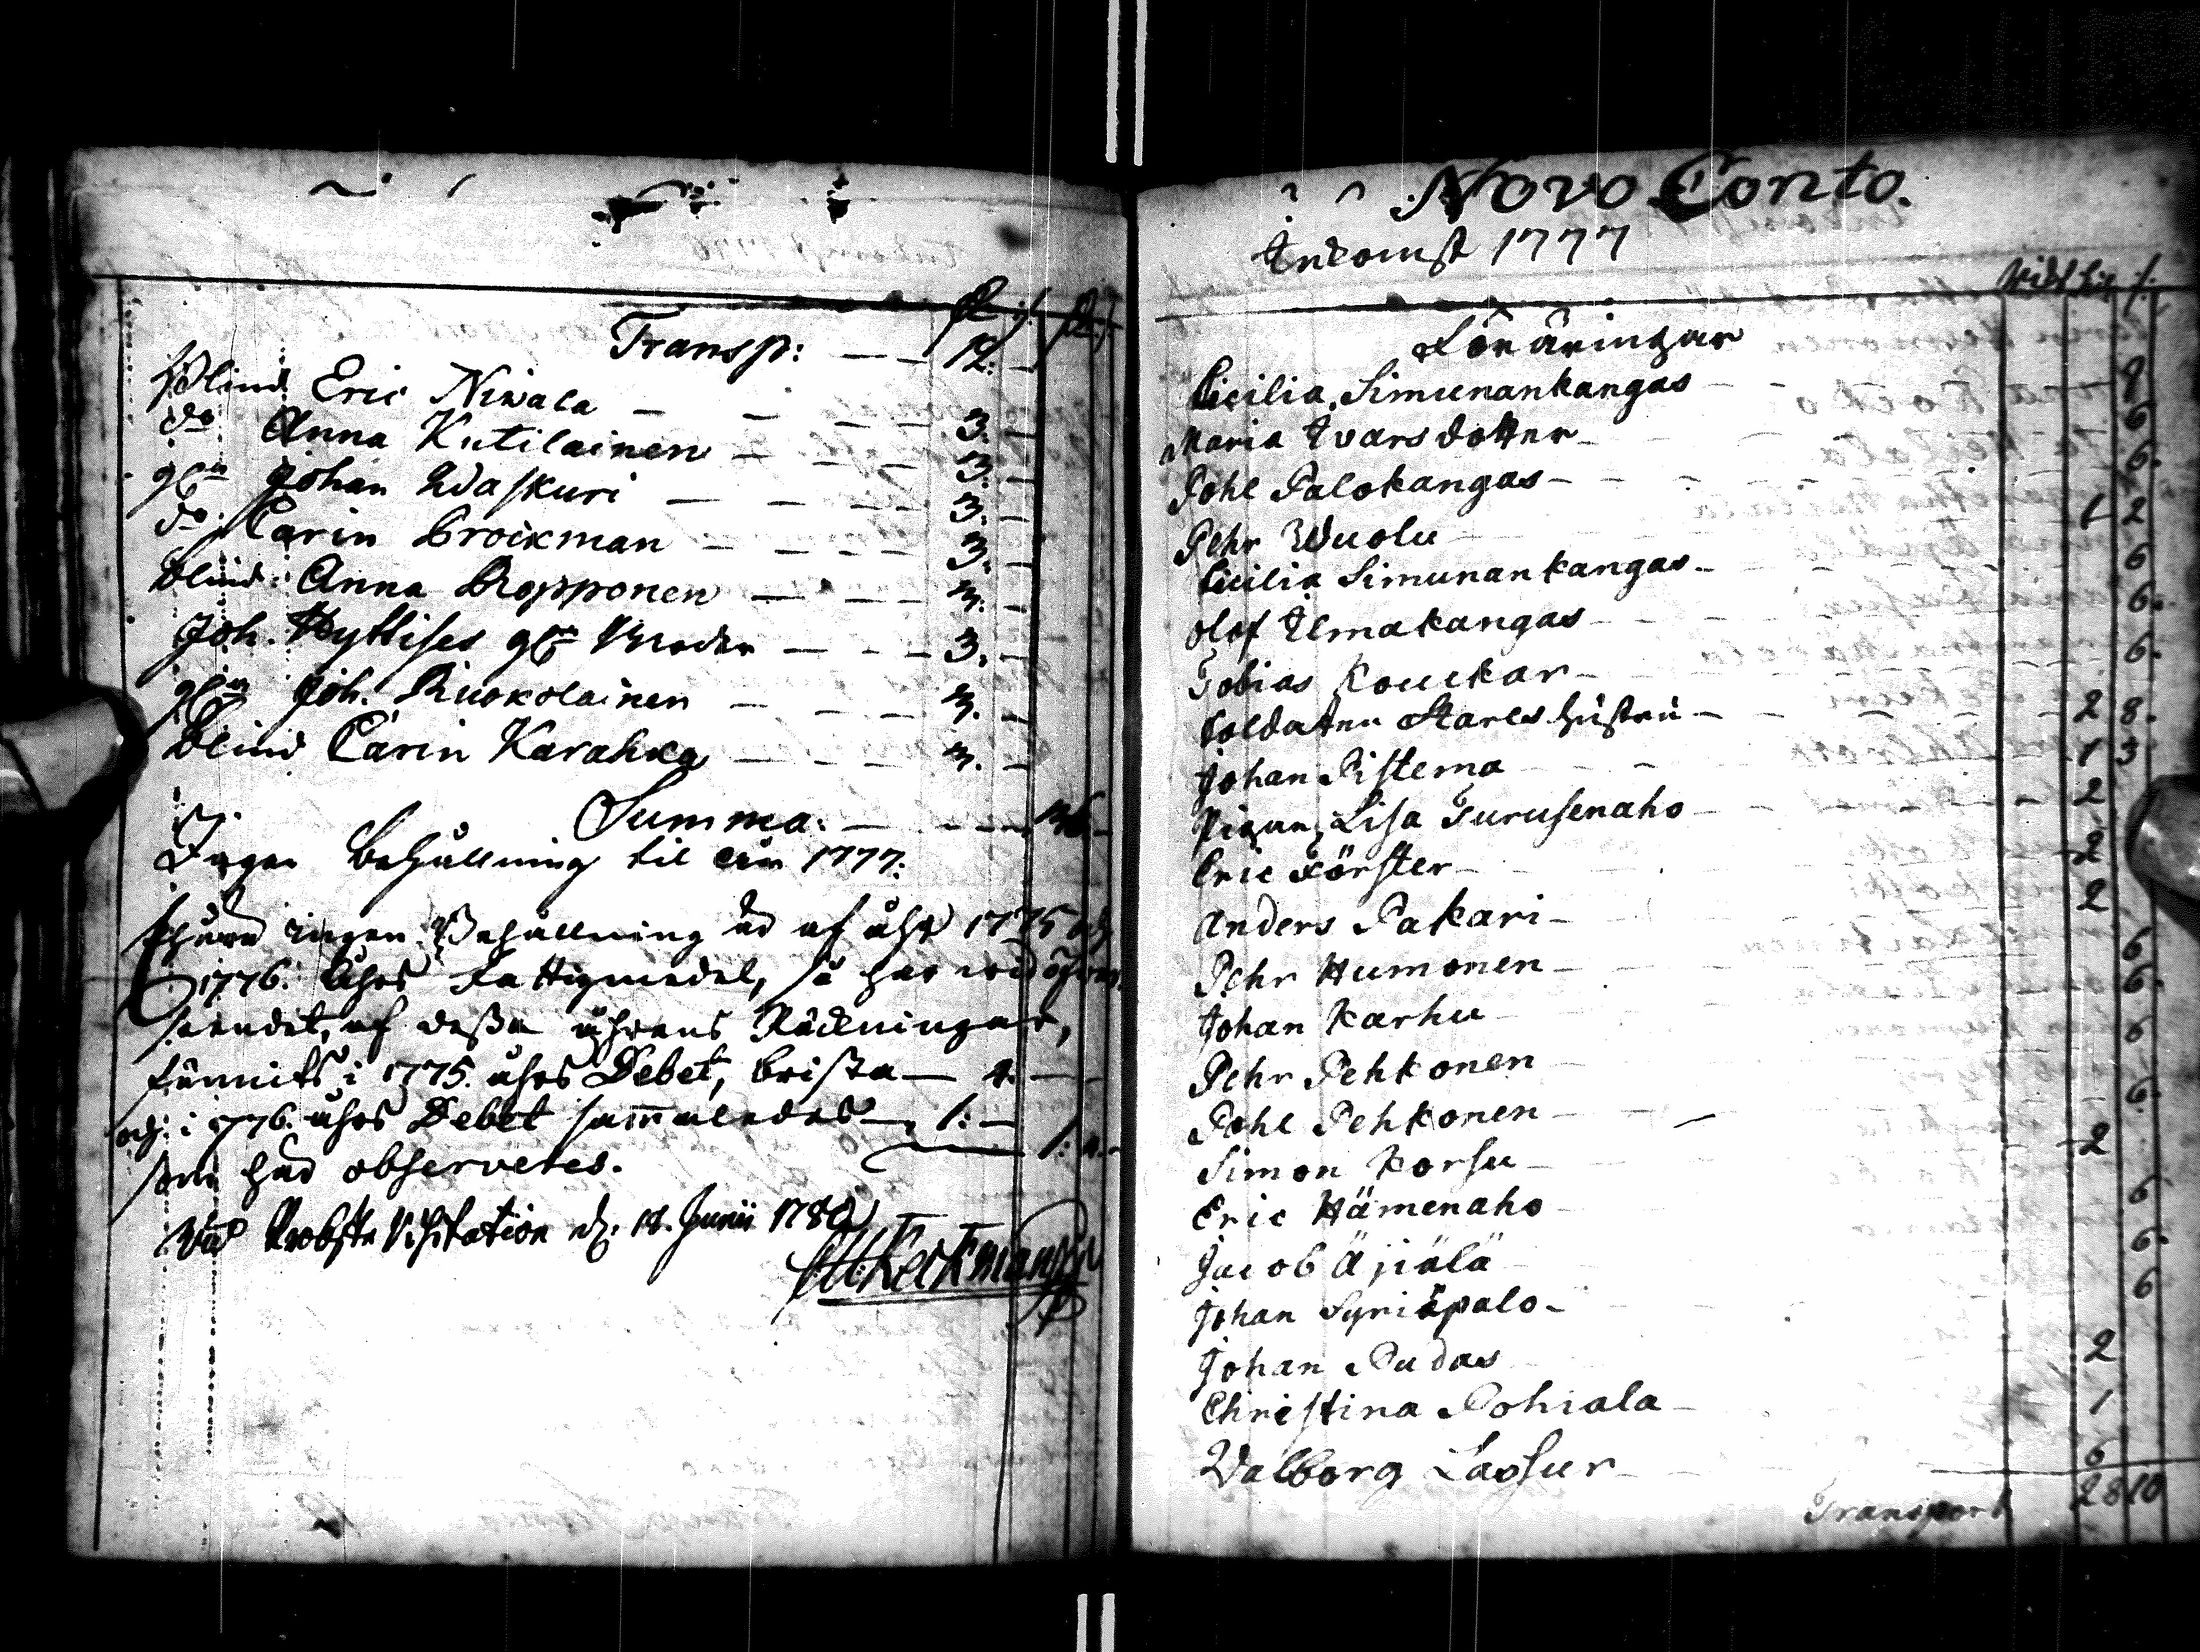 Transp: — — 12. —
Blind Eric Niwala — — 3. —
do Anna Kutilainen — — 3. —
Johan Waskuri — — 3. —
do. Carin Brockman — — 3. —
Blind: Anna Ropponen — — 3. —
Joh. Hyttises — — 3. —
Joh. Ruokolainen — — 3. —
Blind Carin Karahka — — 3. —
Summa. — — 36 —
Ingen Behållning til 1777.
ingen Behållning af åhr 1775 och
1776. åhrs Fattigmedel, så har
af dessa åhrens Räckningar,
funnits i 1775. åhrs Debet, brista —
och i 1776. åhrs Debet — 1: —
som här observeres.
Wid Probsts Visitation d. 18. Junii 1780
Novo Conto.
Inkomst 1777
Föräringar
Cicilia Simunankangas — 8
Maria Ivarsdotter — 6
Pohl Palokangas — 6.
Pehr Wuolu 1 2
Cicilia Simunankangas — 6
Olof Ilmakangas — 6.
Tobias Kouckar — 6.
Soldaten Starcks hustru — 2 8.
Johan Pistema 1 3
Pigan Lisa Turusenaho — 2
Eric Förster — 2
Anders Pakari — 2
Pehr Humonen — 6
Johan Karhu 6.
Pehr Pehkonen 6
Pohl Pehkonen — 6.
Simon Korsu — 2
Eric Hämenaho — 6
Jacob Äjiälä 6.
Johan Syriäpalo — 6
Johan Pudas 2
Christina Pohiala — 1
Walborg Lassur — 6
Transport 28 10